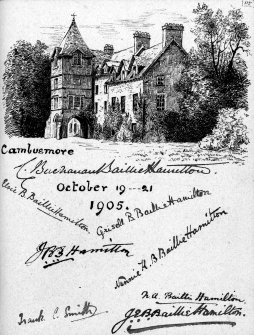 Cambusmore
C. Buchanan Baillie Hamilton.
Elsie B. Baillie Hamilton
October 19-21
1905.
Griselt B. Baillie Hamilton
J.B.B. Hamilton
H. B. Baillie Hamilton
N. A. Baillie Hamilton.
Frank C. Smith
J. B. Baillie Hamilton.